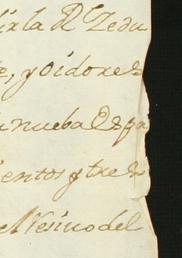 la Rl Zedu
, y oidores
nueba Espa
entos y tres
Vesino del